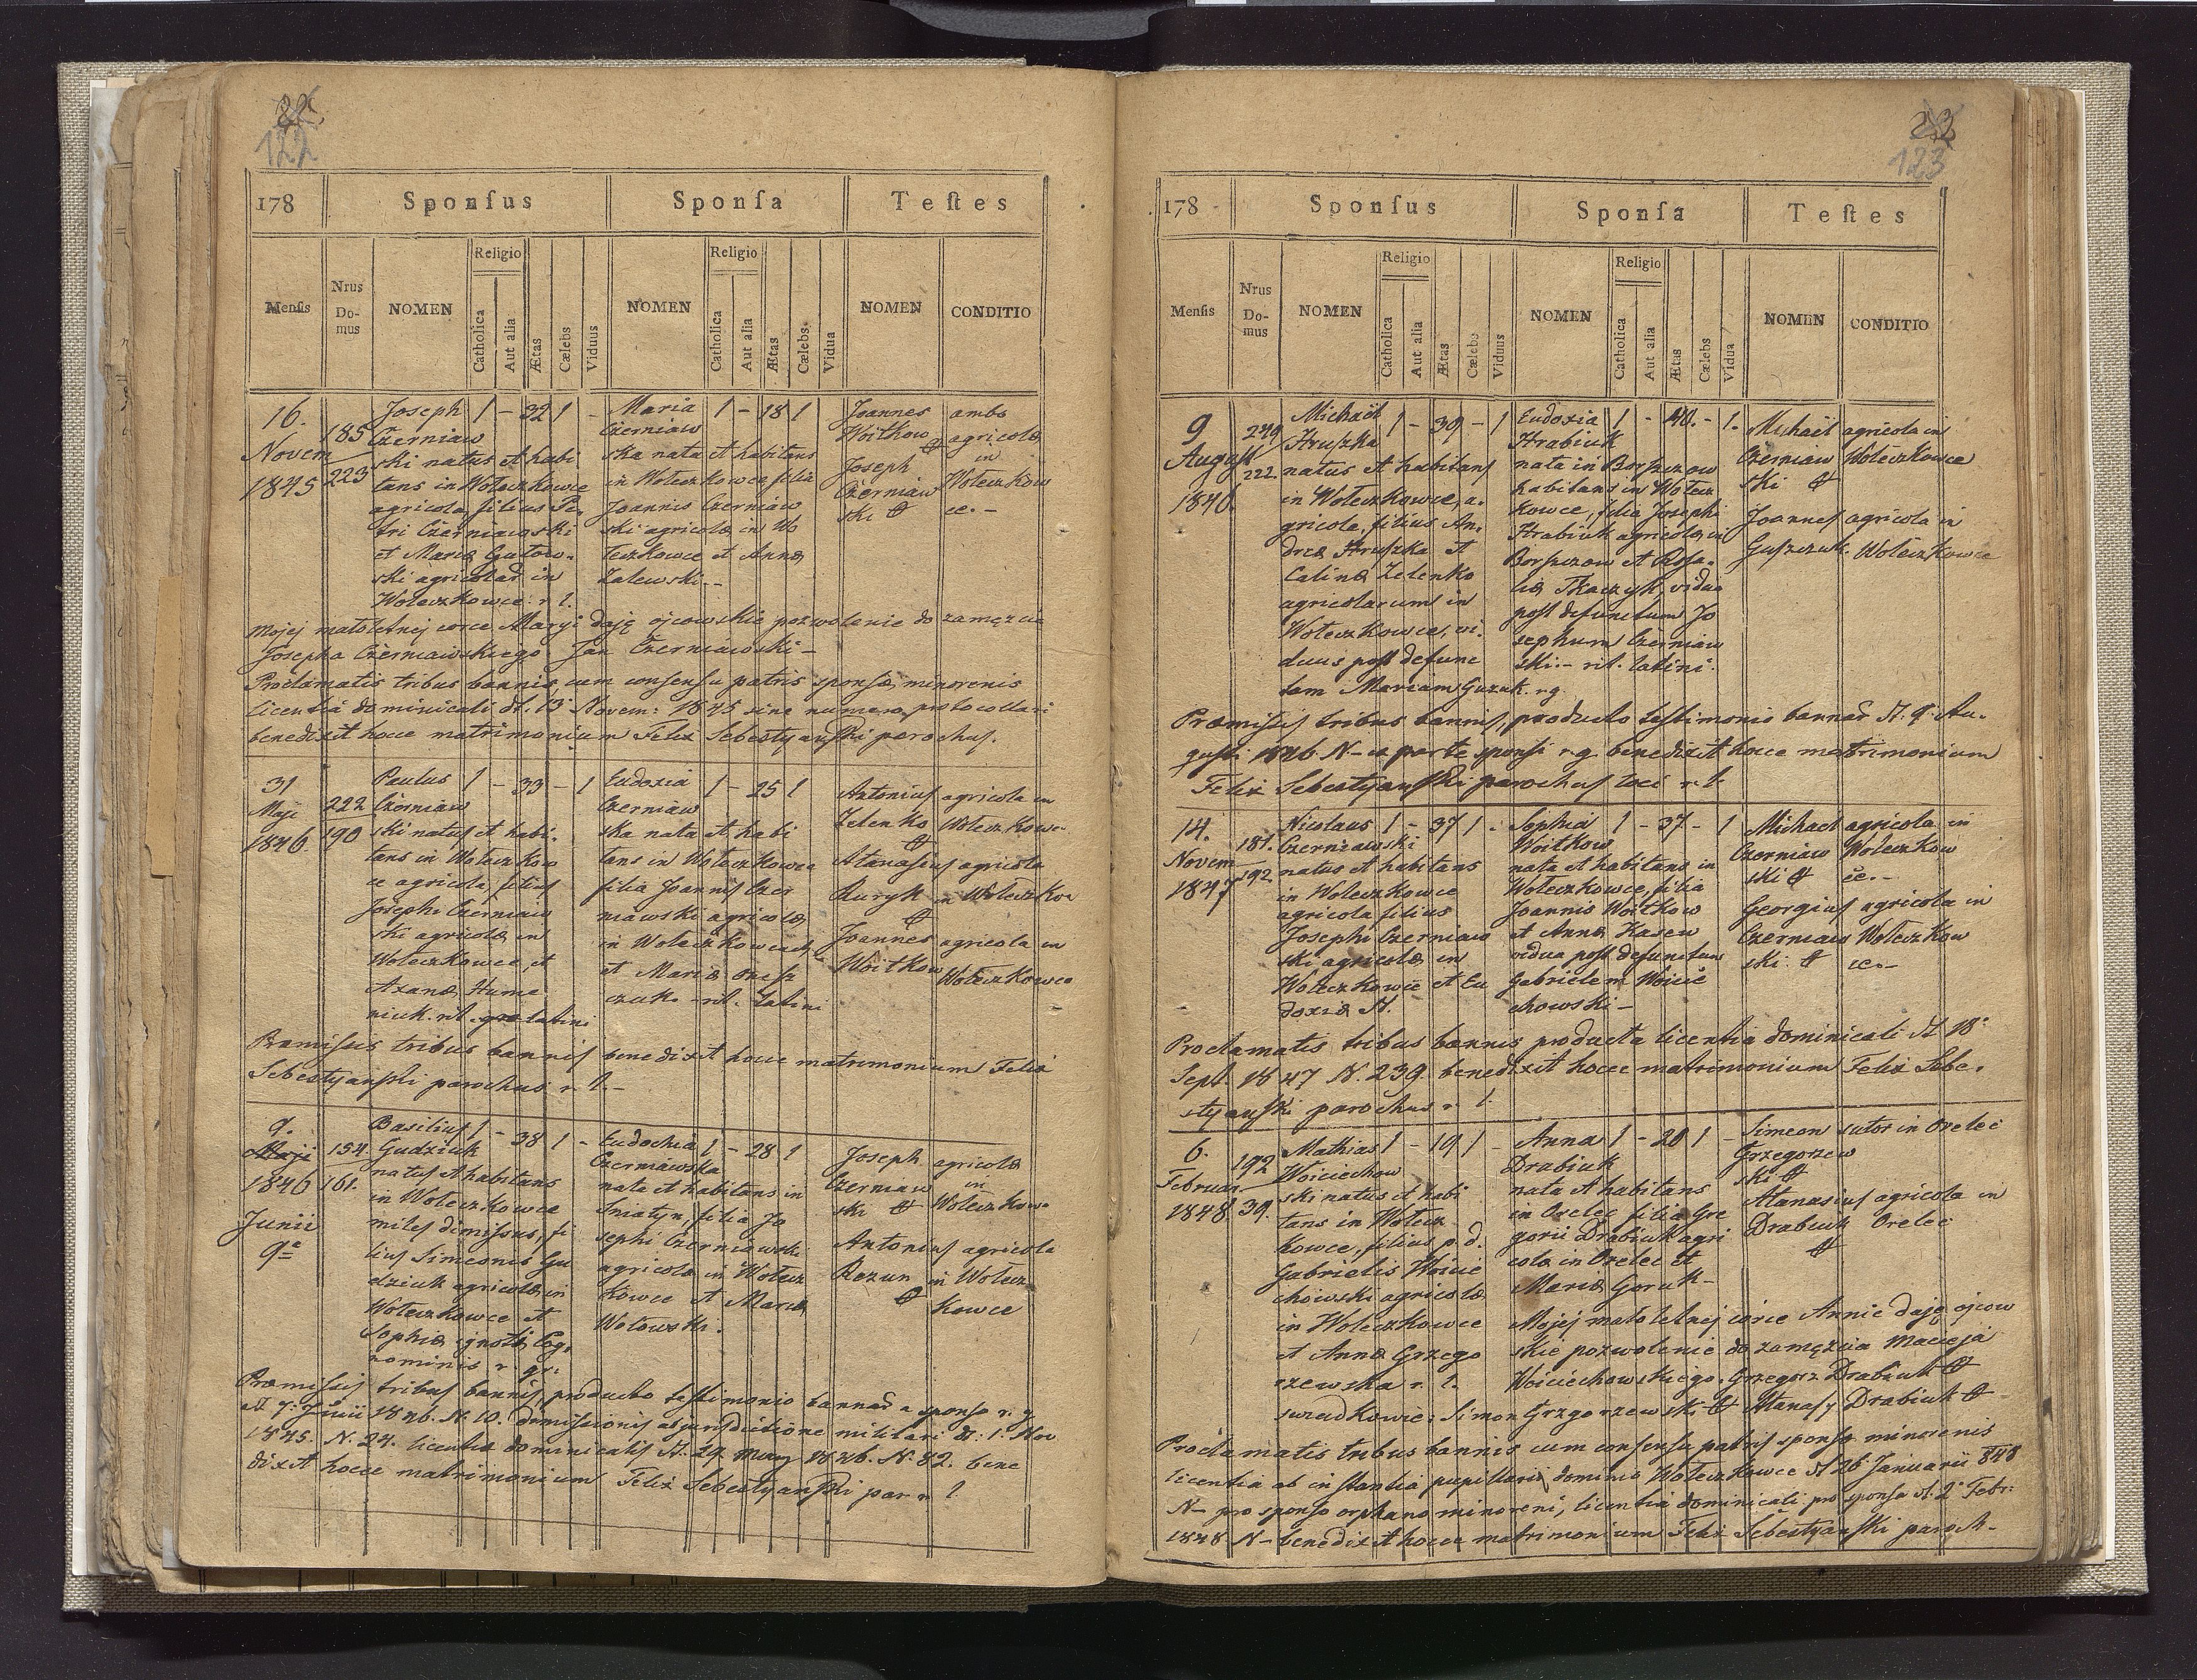 122
178
Sponſus
Sponſa
Teſtes
Menſis
Nrus Domus
NOMEN
Religio
Catholica
Aut alia
Ætas
Cælebs
Viduus
NOMEN
Religio
Catholica
Aut alia
Ætas
Cælebs
Vidua
NOMEN
CONDITIO
16.
Novem
1845
185
223
Joseph 1 - 32 1 -
Czerniaw
ski natus et habi
tans in Wołeczkowce
agricola, filius Pe,
tri Czerniawski
et Mariæ Gutow-
ski agricolar in
Wołeczkowce r. l.
Maria 1 - 18 1
Czerniaw
ska nata et habitans
in Wołeczkowce filia
Joannis Czerniaw
ski agricolæ in Wo
łeczkowce et Annæ
Zalewski.-
Joannes
Woitkow
Joseph
Czerniaw
ski
ambo
agricolæ
in
Wołeczkow
ce.-
Mojej małoletniej corce Maryi daję ojcowskie pozwolenie do zamęzcia
Josepha Czerniawskiego Jan Czerniawski -
Proclamatis tribus bannis, cum consensu patris sponsæ minorenis
licentia dominicali dt. 13 Novem: 1845 sine numero protocollari
benedixit hocce matrimonium Felix Sebestyański parochus.
31
Maji
1846
222
190
Paulus 1 - 33 - 1
Czerniaw
ski natus et habi-
tans in Wołeczkow
ce agricola, filius
Josephi Czerniaw
ski agricolæ in
Wołeczkowce, et
Axanæ Hume
niuk. rit. latini
Eudoxia 1 - 25 1
Czerniaw
ska nata et habi
tans in Wołeczkowce
filia Joannis Czer
niawski agricolæ
in Wołeczkowce
et Mariæ
czuk. rit. latini
Antonius
Zelenko
Atanasius
Kuryk
Joannes
Woitkow
agricola in
Wołeczkowce
agricola
in Wołeczkow
agricola in
Wołeczkowce
Præmissis tribus bannis benedixit hocce matrimonium Felix
Sebestyański parochus r. l. -
9.
Maji
1846
Junii
9ª
154.
161.
Basilius 1 - 38 1 -
Gudziuk
natus et habitans
in Wołeczkowce
miles dimissus, fi
lius Simeonis Gu
dziuk agricolæ in
Wołeczkowce et
Sophiæ ignoti Cog,
nominis r. gr:
Eudochia 1 - 28 1
Czerniawska
nata et habitans in
Sniatyn, filia Jo
sephi Czerniawski
agricolæ in Wołecz
kowce et Mariæ
Wołowski.
Joseph
Czerniaw
ski
Antonius
Rezun
agricola
in
Wołeczkow
agricola
in Wołecz
kowce
Præmissis tribus bannis, producto testimonio bannar a sponso r. g
dt 7. Junii 1846. N. 10. dimissionis a jurisdictione militari dt: 1. Nov
1845. N. 24. licentia dominicalis dt. 29. May 1846. N. 82. bene
dixit hocce matrimonium Felix Sebestyański par r. l
123
178
Sponſus
Sponſa
Teſtes
Menſis
Nrus Domus
NOMEN
Religio
Catholica
Aut alia
Ætas
Cælebs
Viduus
NOMEN
Religio
Catholica
Aut alia
Ætas
Cælebs
Vidua
NOMEN
CONDITIO
9
August
1846
249
222.
Michaël 1 - 39 - 1
Hruszka
natus et habitans
in Wołeczkowce, a,
gricola, filius An,
dreæ Hruszka et
Calinæ Zelenko
agricolarum in
Wołeczkowce, vi,
duus post defunc
tam Mariam Guzuk. r g
Eudoxia 1 - 40. - 1.
Hrabiuk
nata in Borszczow
habitans in Wołecz
kowce, filia Josephi
Hrabiuk agricolæ in
Borszczow et Rosa,
liæ Tkaczyk, vidua
post defunctum Jo
sephum Czerniaw
ski.- rit. latini.
Michaël
Czerniaw
ski
Joannes
Guszczuk
agricola in
Wołeczkowce
agricola in
Wołeczkowce
Præmissis tribus bannis, producto testimonio bannar dt. 9 Au,
gusti 1846 N- ex parte sponsi r.g. benedixit hocce matrimonium
Felix Sebestyański parochus loci r. l.
14.
Novem
1847
181.
192
Nicolaus 1 - 37 1 -
Czerniawski
natus et habitans
in Wołeczkowce
agricola filius
Josephi Czerniaw
ski agricolæ in
Wołeczkowce et Eu
doxiæ N.
Sophia 1 - 37 - 1
Woitkow
nata et habitans in
Wołeczkowce, filia
Joannis Woitkow
et Annæ Kasew
vidua post defunctum
Gabrielem Woicie
chowski -
Michael
Czerniaw
ski
Georgius
Czerniaw
ski.
agricola in
Wołeczkow
ce.-
agricola in
Wołeczkow
ce.-
Proclamatis tribus bannis producta licentia dominicali dt 18
Sept. 1847 N. 239. benedixit hocce matrimonium Felix Sebe,
styański parochus r. l.
6.
Februar
1848
192
39.
Mathias 1 - 19 1 -
Woiciechow
ski natus et habi
tans in Wołecz
kowce, filius p. d.
Gabrielis Woicie
chowski agricolæ
in Wołeczkowce
et Annæ Grzego
rzewska r. l.
Anna 1 - 20 1 -
Drabiuk
nata et habitans
in Orelec filia Gre
gorii Drabiuk agri
cola in Orelec et
Mariæ Goruk -
Simeon
Grzegorzew
ski
Atanasius
Drabiuk
sutor in Orelec
agricola in
Orelec
Mojej małoletniej córce Annie daję ojcow
skie pozwolenie do zamęzcia Macieja
Woiciechowskiego. Grzegorz Drabiuk
swiadkowie: Simon Grzgorzewski Atanasy Drabiuk
Proclamatis tribus bannis cum consensu patris sponsæ minorenis
licentia ab instantia pupillari dominio Wołeczkowce dt 26 Januarii 848
N- pro sponso orphano minoreni, licentia dominicali pro sponsa dt. 2 Febr:
1848 N- benedixit hocce matrimonium Felix Sebestyański paroch-